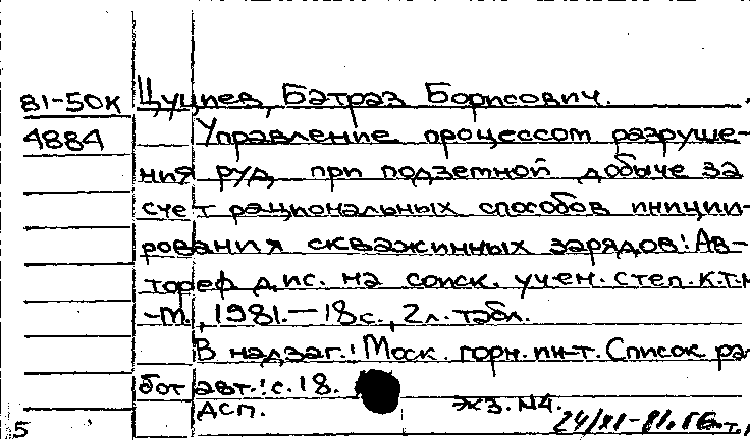 81-50К Цуциев, Батраз Борисович.
4884 Управление процессом разруше-
ния руд при подземной добыче за
счет рациональных способов иниции-
рования скважинных зарядов: Ав-
тореф дис. на соиск. учен. степ. к.т.н
-М., 1981.—18с., 2л. табл.
В надзаг.: Моск. горн. ин-т. Список ра-
бот авт.: с. 18.
ДСП. экз. №4.
5 24/XI-81.